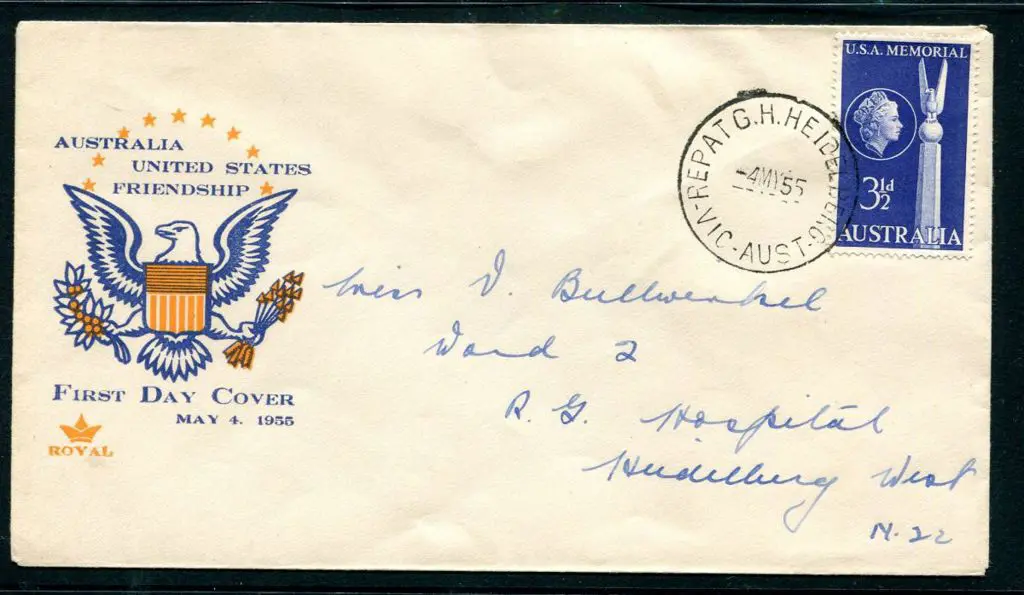 AUSTRALIA
UNITED STATES
FRIENDSHIP
FIRST DAY COVER
MAY 4. 1955
ROYAL
REPAT G.H. HEIDELBERG
-4MY55
-VIC-AUST-
U.S.A. MEMORIAL
3½d
AUSTRALIA
Miss V. Bullwinkel
Ward 2
R. G. Hospital
Heidelberg West
N. 22